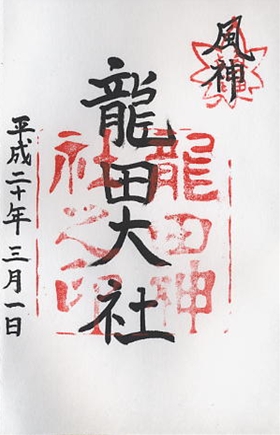 風神
龍田大社
龍田神
社之印
平成二十年三月一日